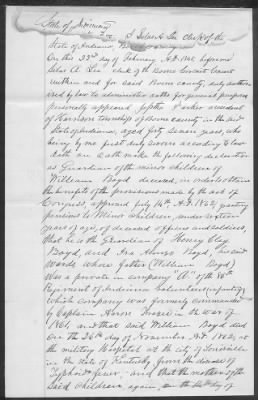 State of Indiana
Boone County
I Silas A. Lee Clerk of the
On this 23rd day of February A.D. 186 before me
Silas A. Lee Clerk of the Boone Circuit Court
within and for said Boone County, duly author
ized by law to administer oaths for general purposes
personally appeared a resident
of Harrison township of Boone County in the said
State of Indiana, aged forty seven years, who
being by me first duly sworn according to law
doth on oath make the following declaration
as Guardian of the minor children of
William Boyd deceased, in order to obtain
the benefit of the provisions made by the act of
Congress, approved July 14th A.D. 1862, granting
pensions to Minor Children, under sixteen
years of age, of deceased officers and soldiers,
that he is the Guardian of Henry Clay
Boyd, and Ira Alonzo Boyd, his said
wards whose father (William Boyd)
was a private in company "A" of the 86th
Regiment of Indiana Volunteers (infantry)
which company was formerly commanded
by Captain in the war of
1861, and that said William Boyd died
on the 26th day of November A.D. 1862, at
the military Hospital at the city of Louisville
in the State of Kentucky from the disease of
Typhoid fever, and that the mother of the
said children again, on the day of